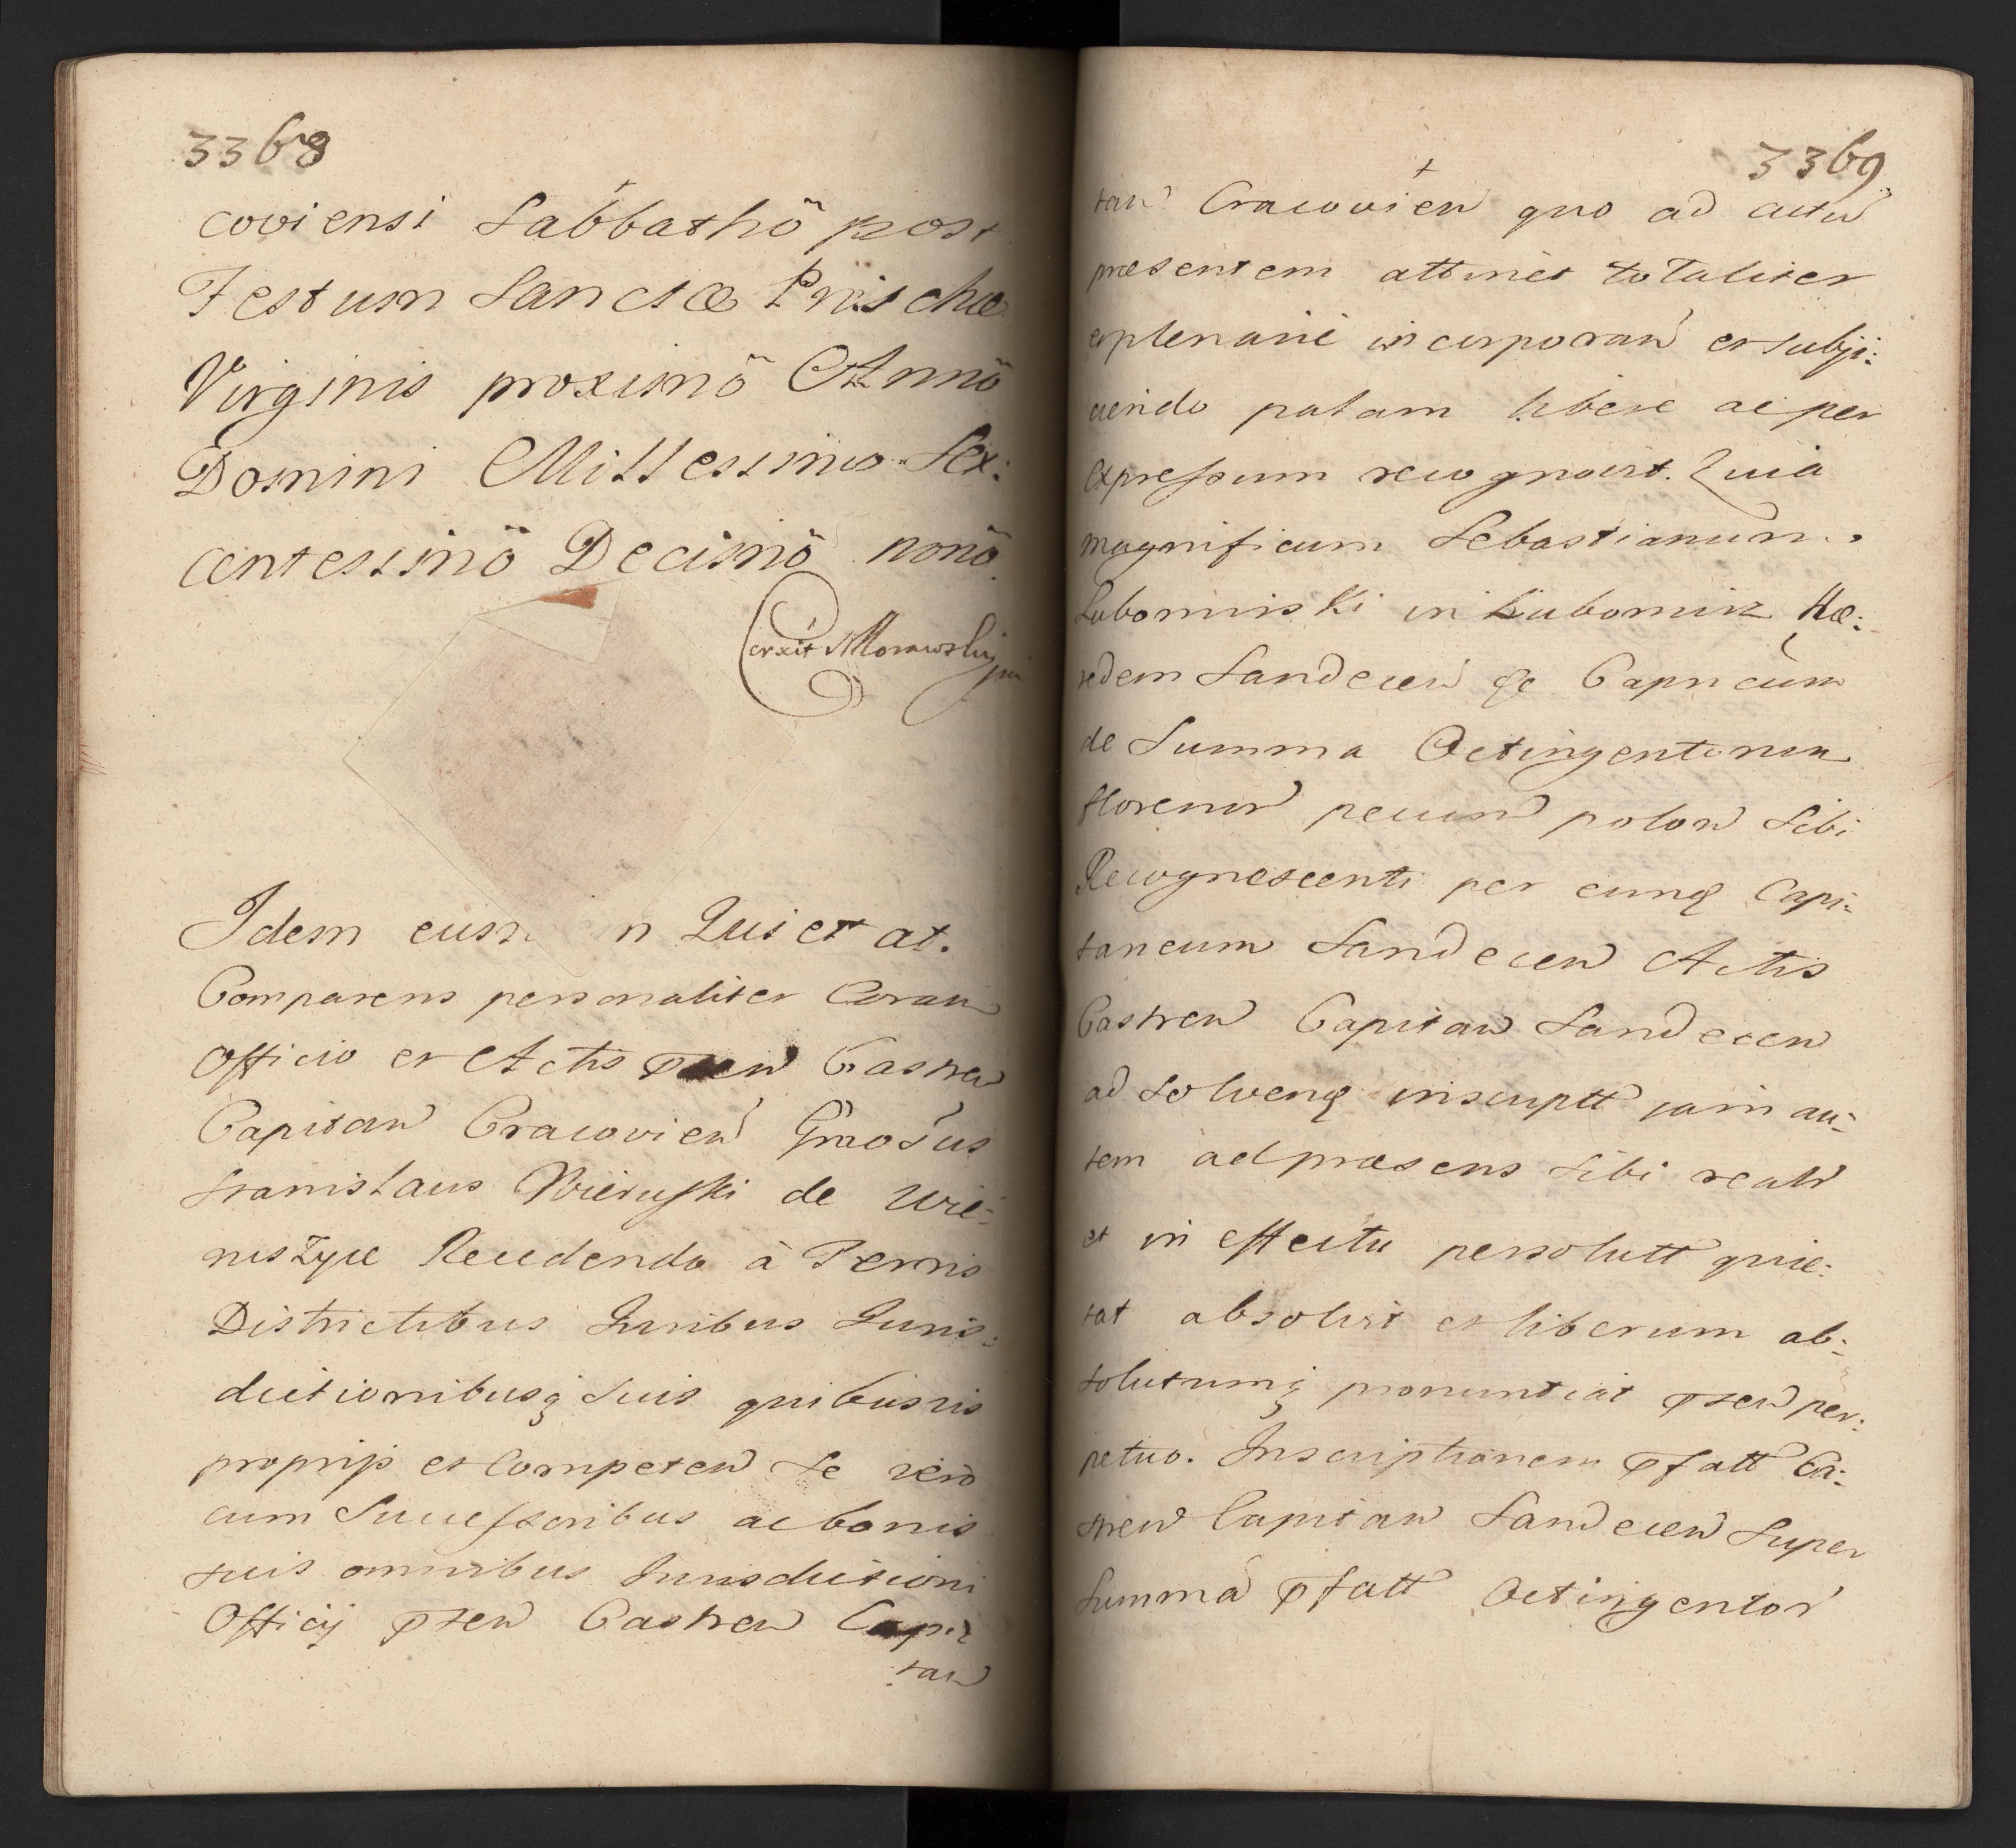 3368
coviensi Sabbathô post
Festum Sanctæ Prischæ
Virginis proximô Annô
Domini Millessimo Sex:
centessimô Decimô nonô.
Morawski
Idem n Quietat.
Comparens personaliter Coram
Officio et Actis Castren
Capitan Cracovien Grãosus
Stanislaus Wieruski de Wie-
ruszyce Recedendo à Terris
Districtibus Juribus Juris:
dictionibusq suis quibusvis
proprijs et Competen se vero
cum Successoribus ac bonis
suis omnibus Jurisdictioni
Officij pšen Castren Capi:
tan
3369
tan Cracovien quo ad actū
præsentem attinet totaliter
explenarie incorporan et subji:
ciendo palam libere ac per
expressum recognovit. Quia
magnificum Sebastianum
Lubomirski in Lubomirz Hæ:
redem Sandecen Capneum
de Summa Octingentorum
florenor pecun polon Sibi
Recognoscenti per eunq Capi:
taneum Sandecen Actis
Castren Capitan Sandecen
ad solvenq inscriptt jam au:
tem ad præsens sibi realr
et in effectu persolutt quie:
tat absolvit et liberum ab:
solutumq pronuntiat pšen per:
petuo. Inscriptionem pfatt Ca:
stren Capitan Sandecen Super
Summa pfatt Octingentor